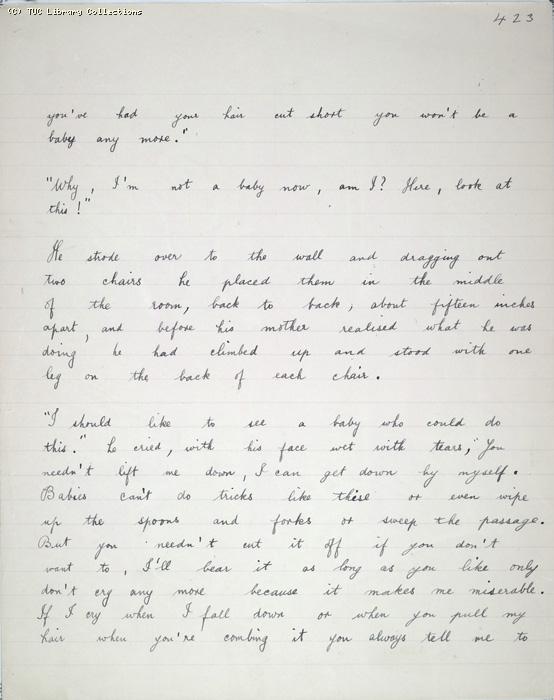 (C) TUC Library Collections
423
you've had your hair cut short you won't be a
baby any more."
"Why, I'm not a baby now, am I? Here, look at
this!"
He strode over to the wall and dragging out
two chairs he placed them in the middle
of the room, back to back, about fifteen inches
apart, and before his mother realised what he was
doing he had climbed up and stood with one
leg on the back of each chair.
"I should like to see a baby who could do
this." he cried, with his face wet with tears, "You
needn't lift me down, I can get down by myself.
Babies can't do tricks like these or even wipe
up the spoons and forks or sweep the passage.
But you needn't cut it off if you don't
want to, I'll bear it as long as you like only
don't cry any more because it makes me miserable.
If I cry when I fall down or when you pull my
hair when you're combing it you always tell me to